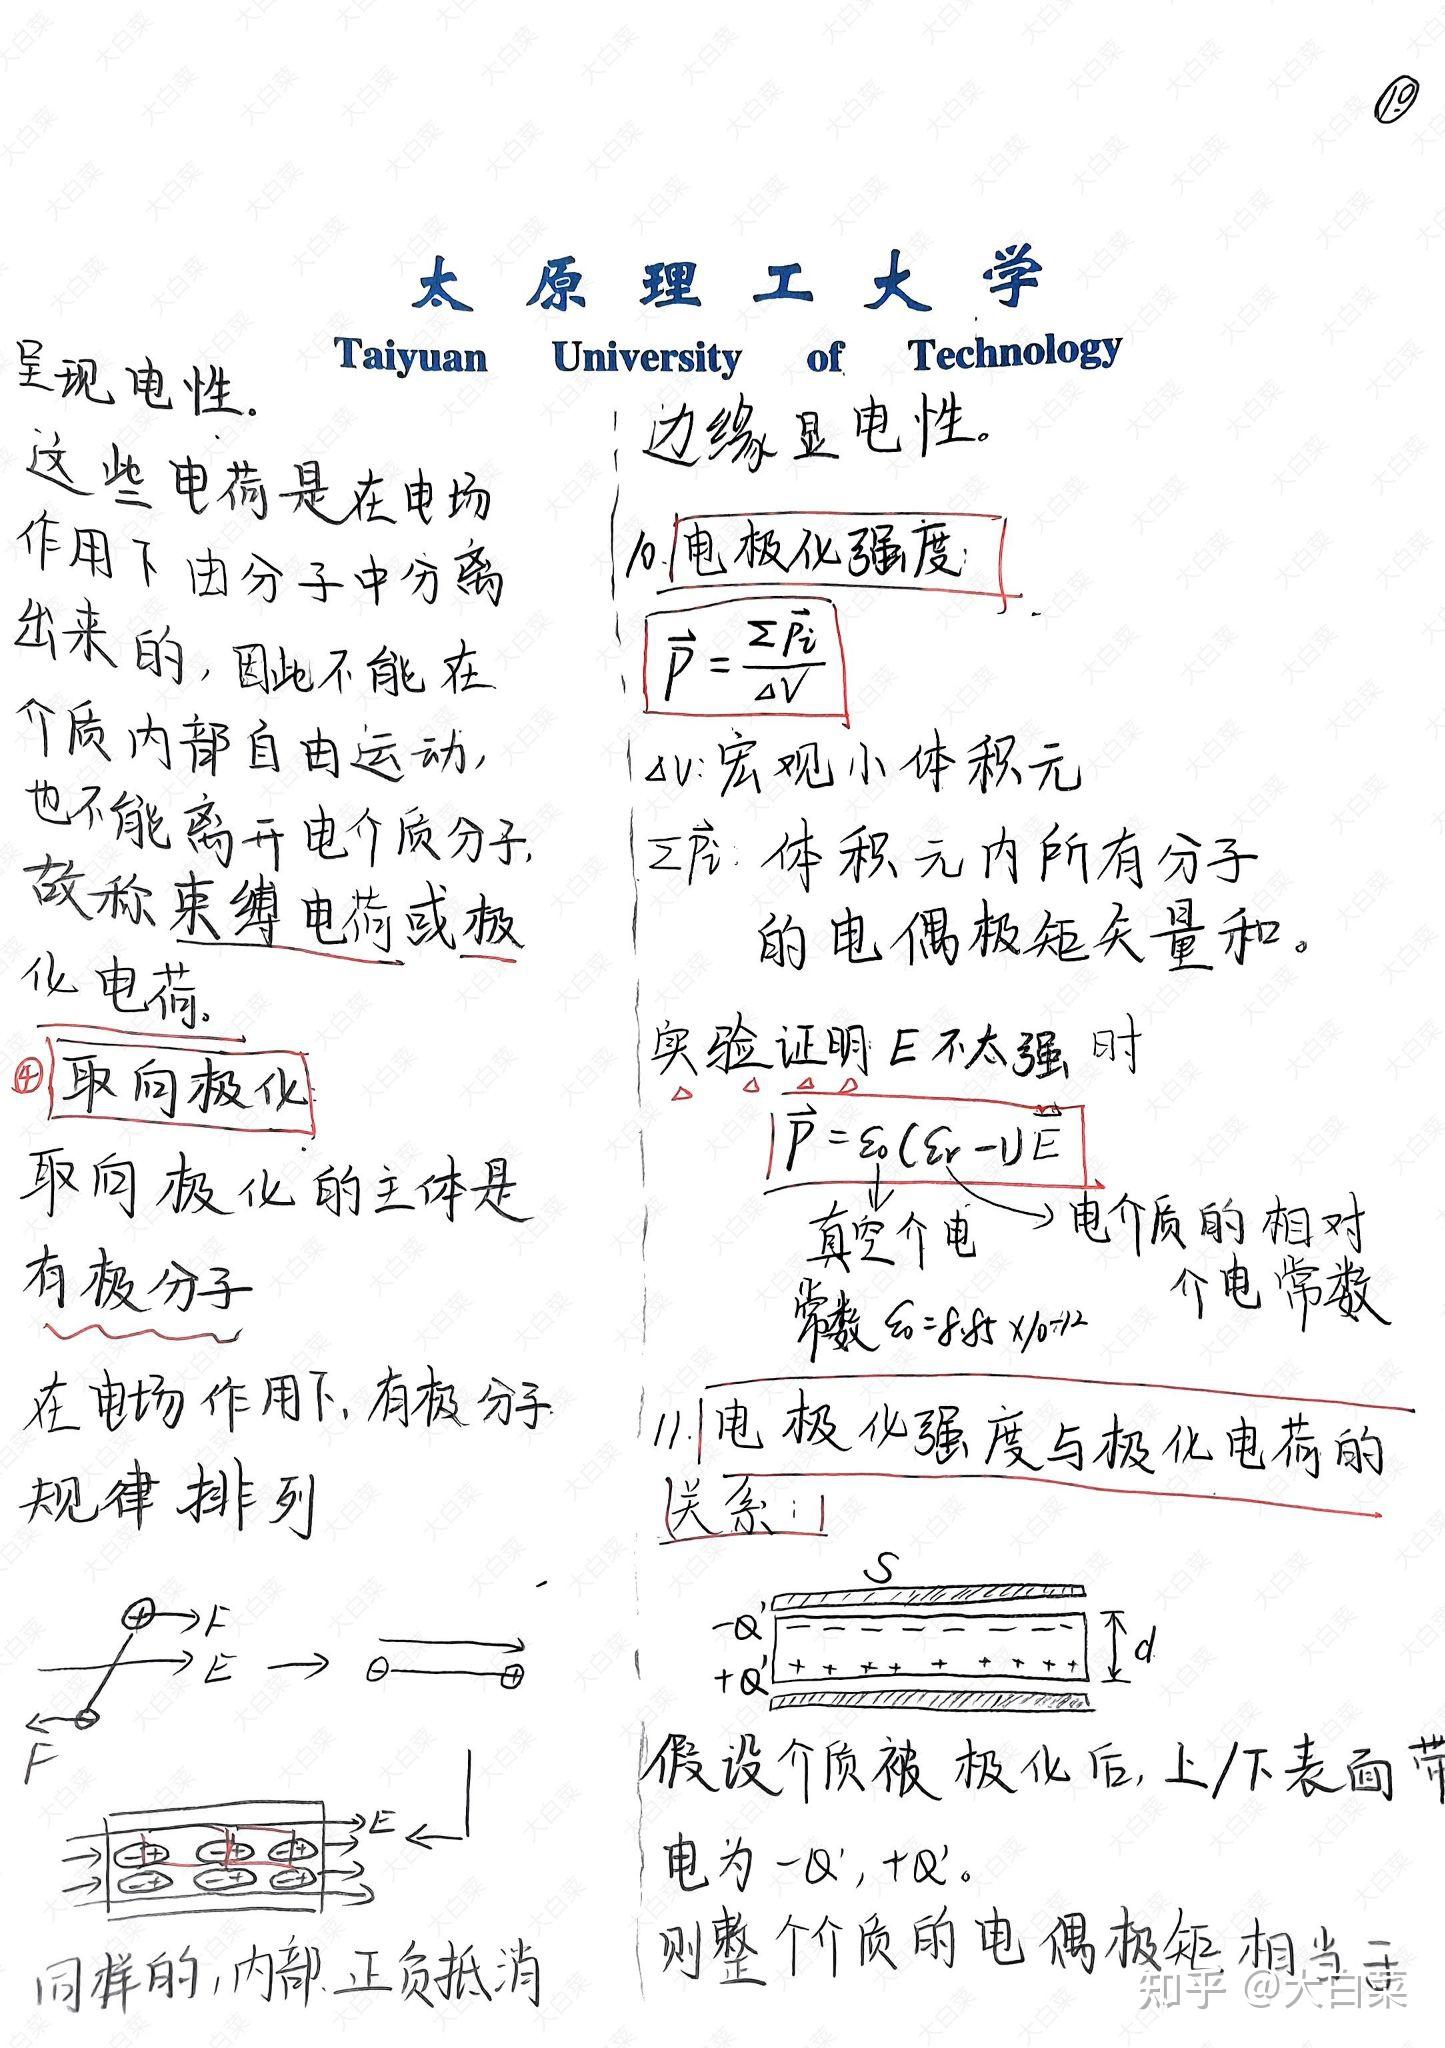 10
太原理工大学
Taiyuan University of Technology
呈现电性.
这些电荷是在电场
作用下由分子中分离
出来的, 因此不能在
介质内部自由运动,
也不能离开电介质分子,
故称束缚电荷或极
化电荷.
④ 取向极化:
取向极化的主体是
有极分子
在电场作用下, 有极分子
规律排列
+ F
E
F
E
同样的, 内部正负抵消
边缘显电性。
10. 电极化强度:
P⃗ = ΣP⃗i / ΔV
ΔV: 宏观小体积元
ΣP⃗i: 体积元内所有分子
的电偶极矩矢量和。
实验证明 E 不太强时
P⃗ = ε₀(εr-1)E⃗
真空介电
常数 ε₀=8.85×10-12
电介质的相对
介电常数
11. 电极化强度与极化电荷的
关系:
S
-Q'
+Q'
d
假设介质被极化后, 上/下表面带
电为 -Q', +Q'。
则整个介质的电偶极矩相当于
知乎 @大白菜